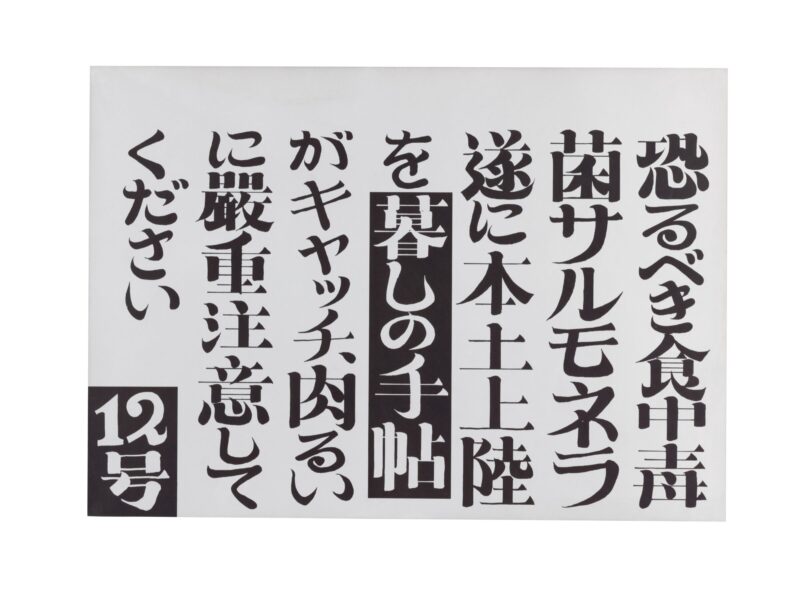 恐るべき食中毒
菌サルモネラ
遂に本土上陸
を暮しの手帖
がキャッチ、肉るい
に嚴重注意して
ください
12号